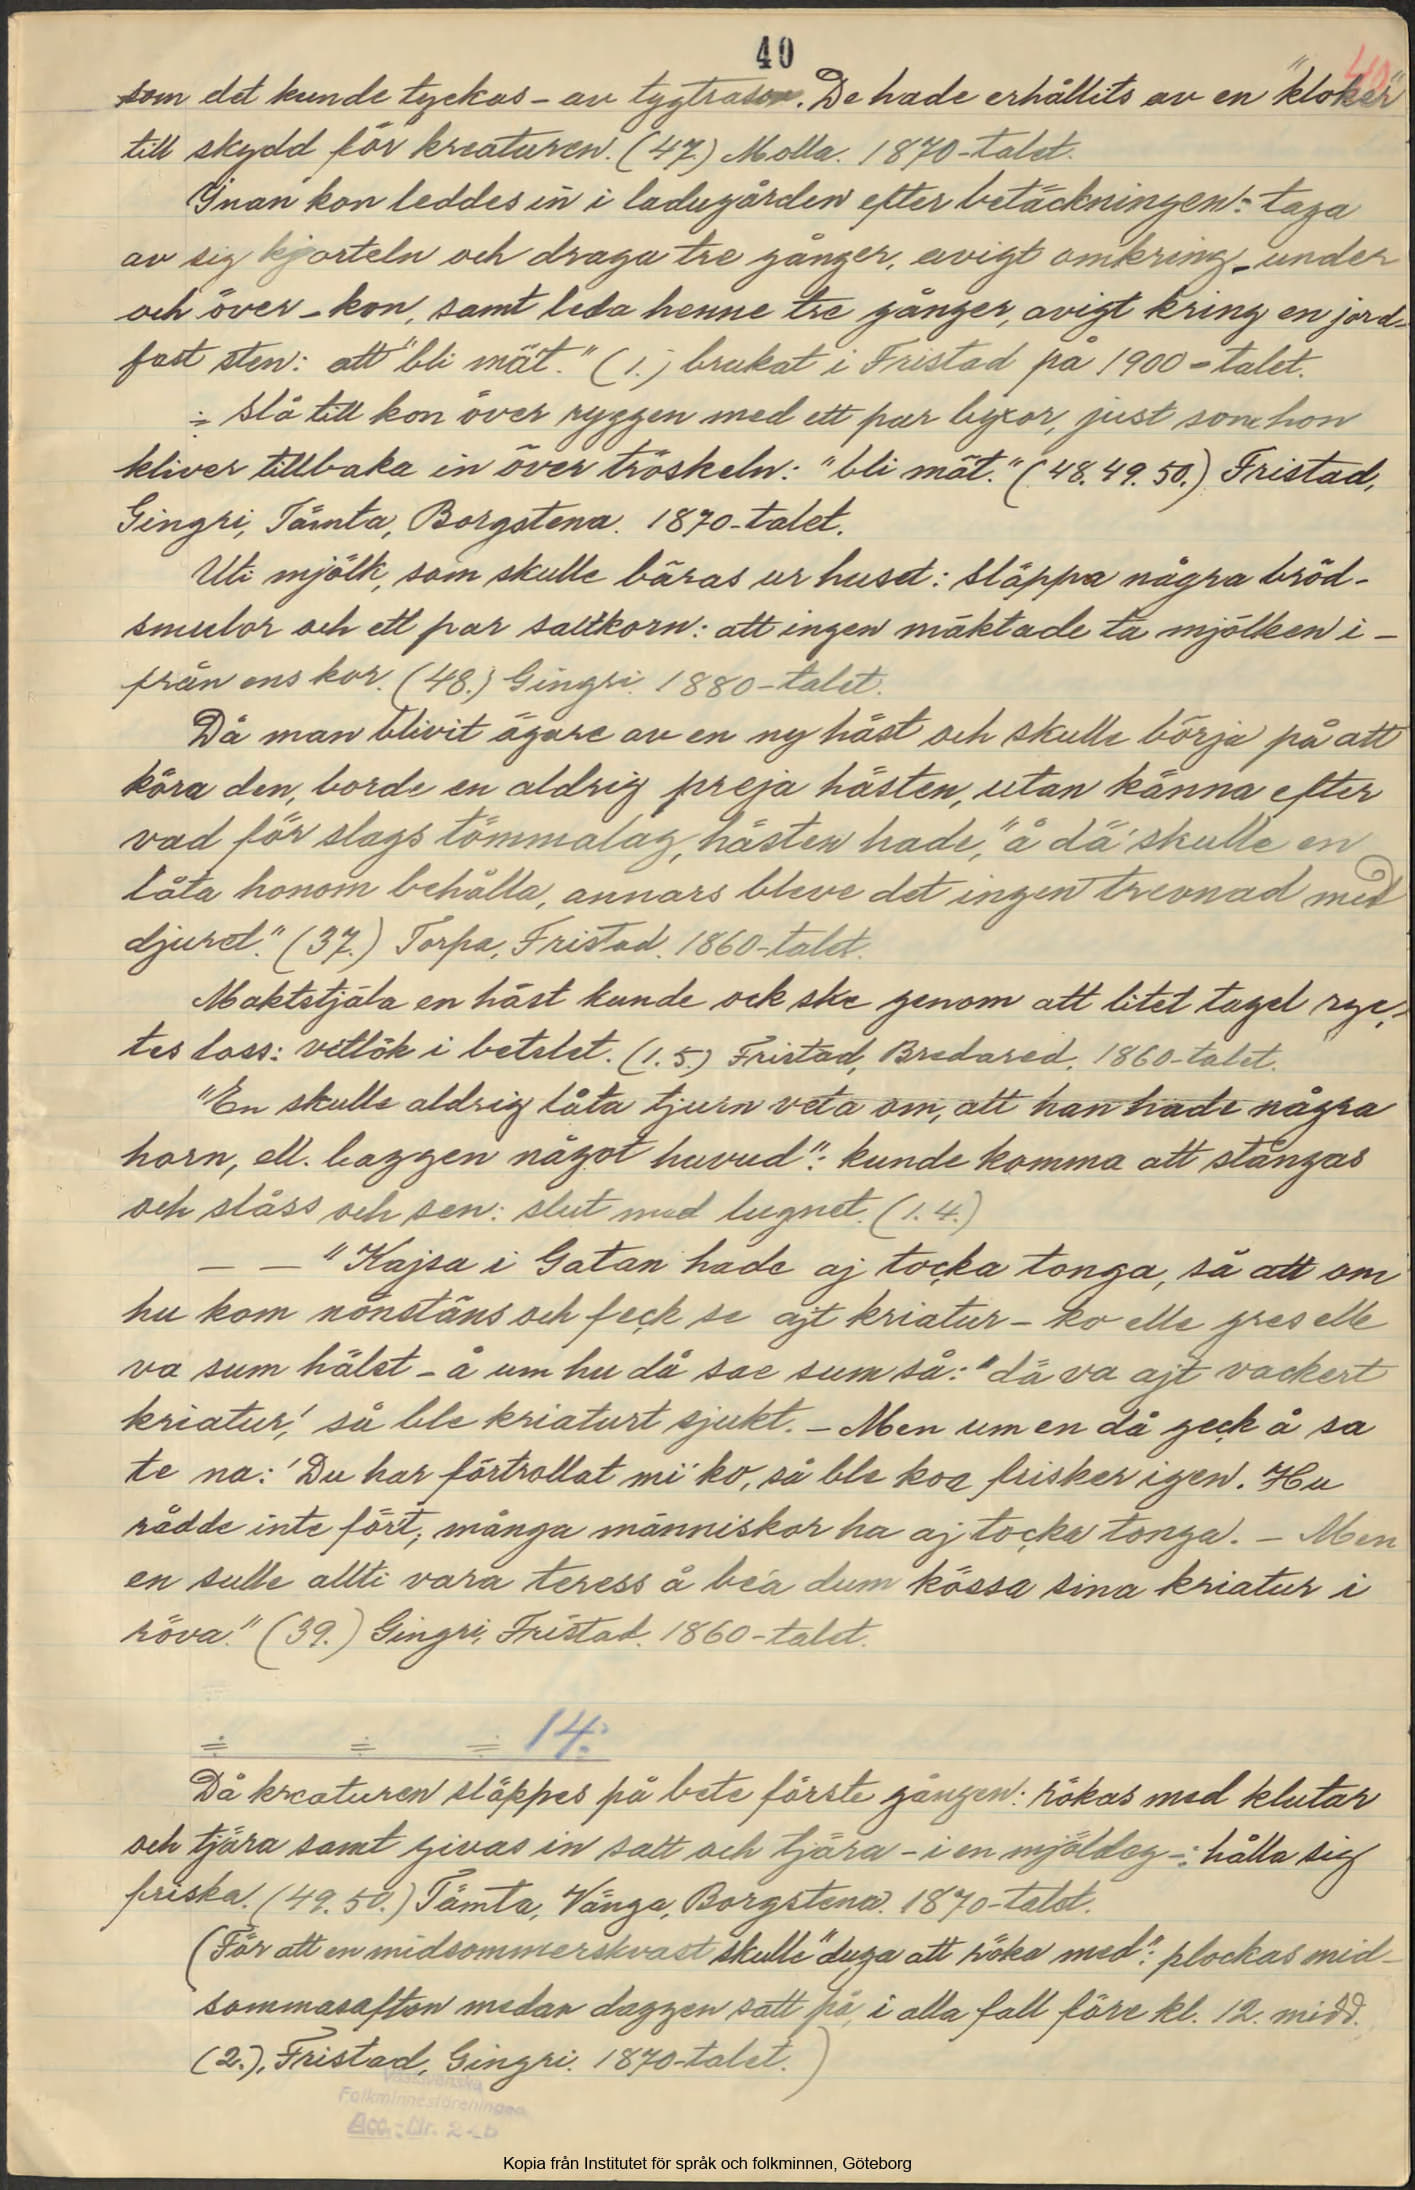 40
40
som det kunde tyckas - av tygtrasor. De hade erhållits av en "kloker"
till skydd för kreaturen. (47.) Molla. 1870-talet.
Innan kon leddes in i ladugården efter betäckningen: taga
av sig kjorteln och draga tre gånger, avigt omkring - under
och över - kon, samt leda henne tre gånger, avigt kring en jord-
fast sten: att "bli mät." (1.) brukat i Fristad på 1900-talet.
÷ Slå till kon över ryggen med ett par byxor, just som hon
kliver tillbaka in över tröskeln: "bli mät." (48. 49. 50.) Fristad,
Gingri, Tämta, Borgstena. 1870-talet.
Uti mjölk, som skulle bäras ur huset: släppa några bröd-
smulor och ett par saltkorn: att ingen mäktade ta mjölken i-
från ens kor. (48.) Gingri. 1880-talet.
Då man blivit ägare av en ny häst och skulle börja på att
köra den, borde en aldrig preja hästen, utan känna efter
vad för slags tömmalag, hästen hade, "å dä' skulle en
låta honom behålla, annars bleve det ingen trevnad med
djuret." (37.) Torpa, Fristad. 1860-talet.
Maktstjäla en häst kunde ock ske genom att litet tagel ryc-
tes loss: vitlök i betslet. (1. 5.) Fristad, Bredared. 1860-talet.
"En skulle aldrig låta tjurn veta om, att han hade några
horn, ell. baggen något huvud": kunde komma att stångas
och slåss och sen: slut med lugnet. (1. 4.)
— — "Kajsa i Gatan hade aj tocka tonga, så att om
hu kom nonstäns och feck se ajt kriatur - ko elle gres elle
va sum hälst - å um hu då sae sum så: "dä va ajt vackert
kriatur,' så ble kriaturt sjukt. - Men um en då geck å sa
te na: 'Du har förtrollat mi' ko, så ble koa frisker igen. Hu
rådde inte fört, många människor ha aj tocka tonga. - Men
en sulle allti vara teress å be'a dum kössa sina kriatur i
röva." (39.) Gingri, Fristad. 1860-talet.
÷ ÷ ÷ 14:
Då kreaturen släppes på bete förste gången: rökas med klutar
och tjära samt givas in salt och tjära - i en mjöldeg -: hålla sig
friska. (49. 50.) Tämta, Vänga, Borgstena. 1870-talet.
(För att en midsommerskvast skulle "duga att röka med": plockas mid-
sommarafton medan daggen satt på, i alla fall före kl. 12. midd.
(2.), Fristad, Gingri. 1870-talet.)
Västsvenska
Folkminnesföreningen
Acc.-Nr.
Kopia från Institutet för språk och folkminnen, Göteborg